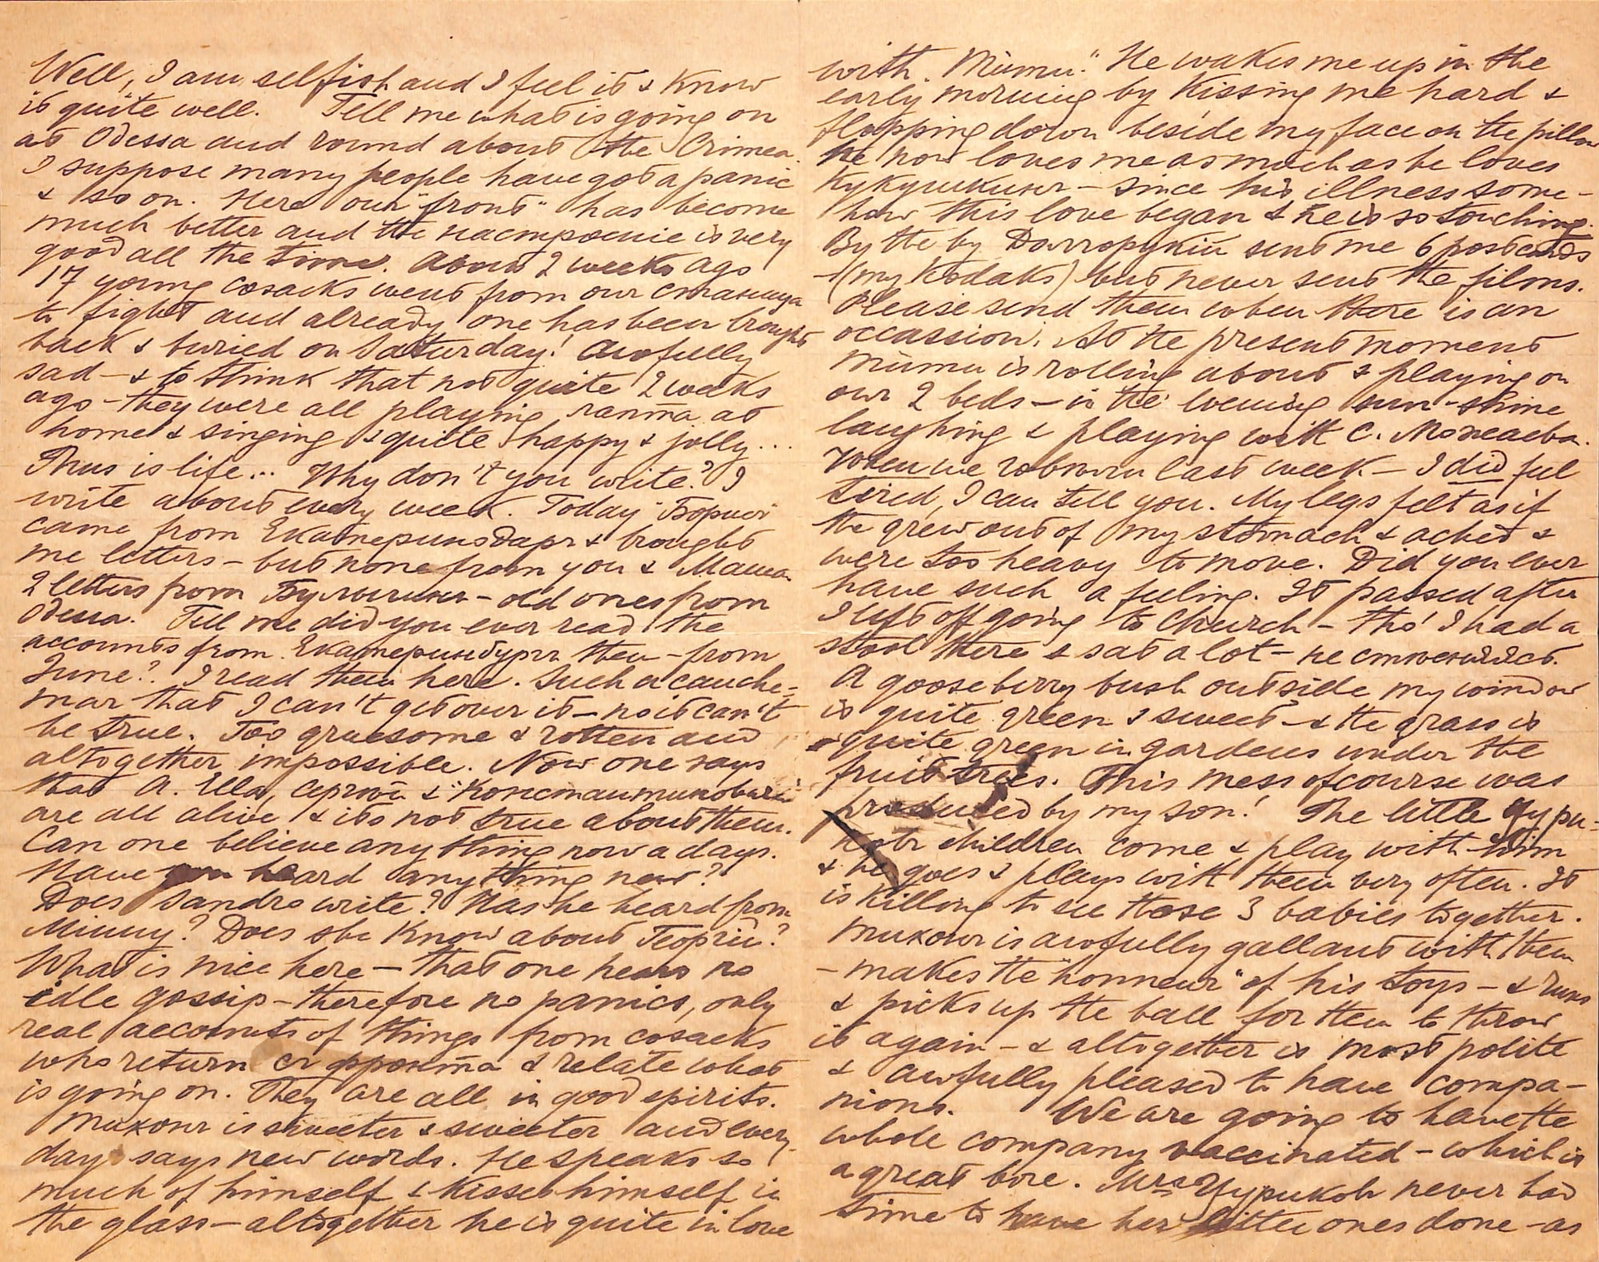 Well, I am selfish and I feel it & know
it quite well. Tell me what is going on
at Odessa and round about the Crimea.
I suppose many people have got a panic
& so on. Here our "front" has become
much better and the настроение is very
good all the time. About 2 weeks ago
17 young cosacks went from our станица
to fight and already one has been brought
back & buried on Saturday! Awfully
sad – & to think that not quite 2 weeks
ago – they were all playing, at
home & singing & quite happy & jolly...
Thus is life... Why don't you write? I
write about every week. Today
came from Екатеринодаръ & brought
me letters – but none from you & Мамa.
2 letters from – old ones from
Odessa. Tell me did you ever read the
accounts from Екатеринбургъ then – from
June? I read them here. Such a cauche=
mar that I can't get over it – no it can't
be true. Too gruesome & rotten and
altogether impossible. Now one says
that A. Ella, Сергѣй & Константиновичи
are all alive & its not true about them.
Can one believe anything now a days.
Have you heard anything new?
Does Sandro write? Has he heard from
Minny? Does she know about Георгій?
What is nice here – that one hears no
idle gossip – therefore no panics, only
real accounts of things from cosacks
who return съ фронта & relate what
is going on. They are all in good spirits.
Тихонъ is sweeter & sweeter and every
day says new words. He speaks so
much of himself & kisses himself in
the glass – altogether he is quite in love
with "Mumu." He wakes me up in the
early morning by kissing me hard &
flopping down beside my face on the pillow
he now loves me as much as he loves
– since his illness some-
how this love began & he is so touching.
By the by sent me 6 postcards
(my Kodaks) but never sent the films.
Please send them when there is an
occassion. At the present moment
Mumu is rolling about & playing on
our 2 beds – in the evening sun-shine
laughing & playing with
When we last week – I did feel
tired, I can tell you. My legs felt as if
the grew out of my stomach & ached &
were too heavy to move. Did you ever
have such a feeling. It passed after
I left off going to Church – tho' I had a
stool there & sat a lot – не
A gooseberry bush outside my window
is quite green & sweet – & the grass is
quite green in gardens under the
fruit trees. This mess of course was
produced by my son! The little
children come & play with him
& he goes & plays with them very often. It
is killing to see those 3 babies together.
Тихонъ is awfully gallant with them
– makes the "honneur" of his toys – & runs
& picks up the ball for them to throw
it again – & altogether is most polite
& awfully pleased to have compa-
nions. We are going to have the
whole company vaccinated – which is
a great bore. Mrs never had
time to have her little ones done – as